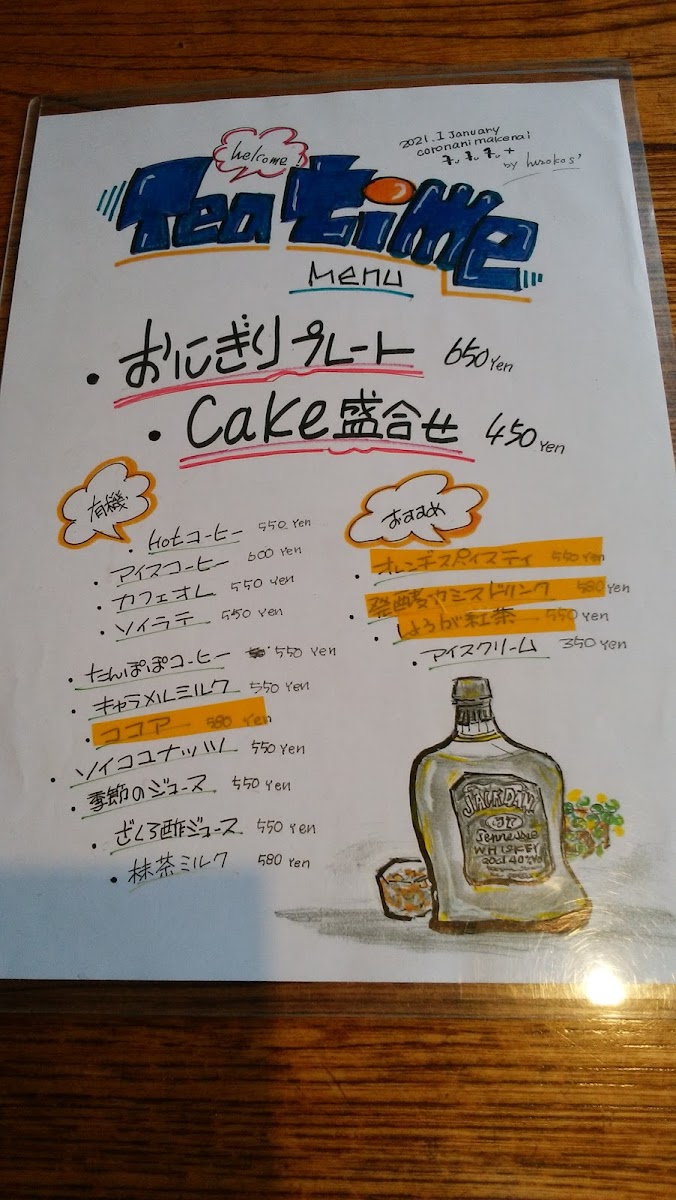 welcome!
2021.1 January
coronani makenai
Tea time
Menu
・おにぎりプレート 650 Yen
・Cake盛合せ 450 Yen
有機
・Hotコーヒー 550 Yen
・アイスコーヒー 600 Yen
・カフェオレ 550 Yen
・ソイラテ 550 Yen
・たんぽぽコーヒー 550 Yen
・キャラメルミルク 550 Yen
・ココア 580 Yen
・ソイココナッツ 550 Yen
・季節のジュース 550 Yen
・ざくろ酢ジュース 550 Yen
・抹茶ミルク 580 Yen
おすすめ
・オレンジスパイスティ 550 Yen
・発酵カシスドリンク 580 Yen
・しょうが紅茶 550 Yen
・アイスクリーム 350 Yen
Tennessee
WHISKEY